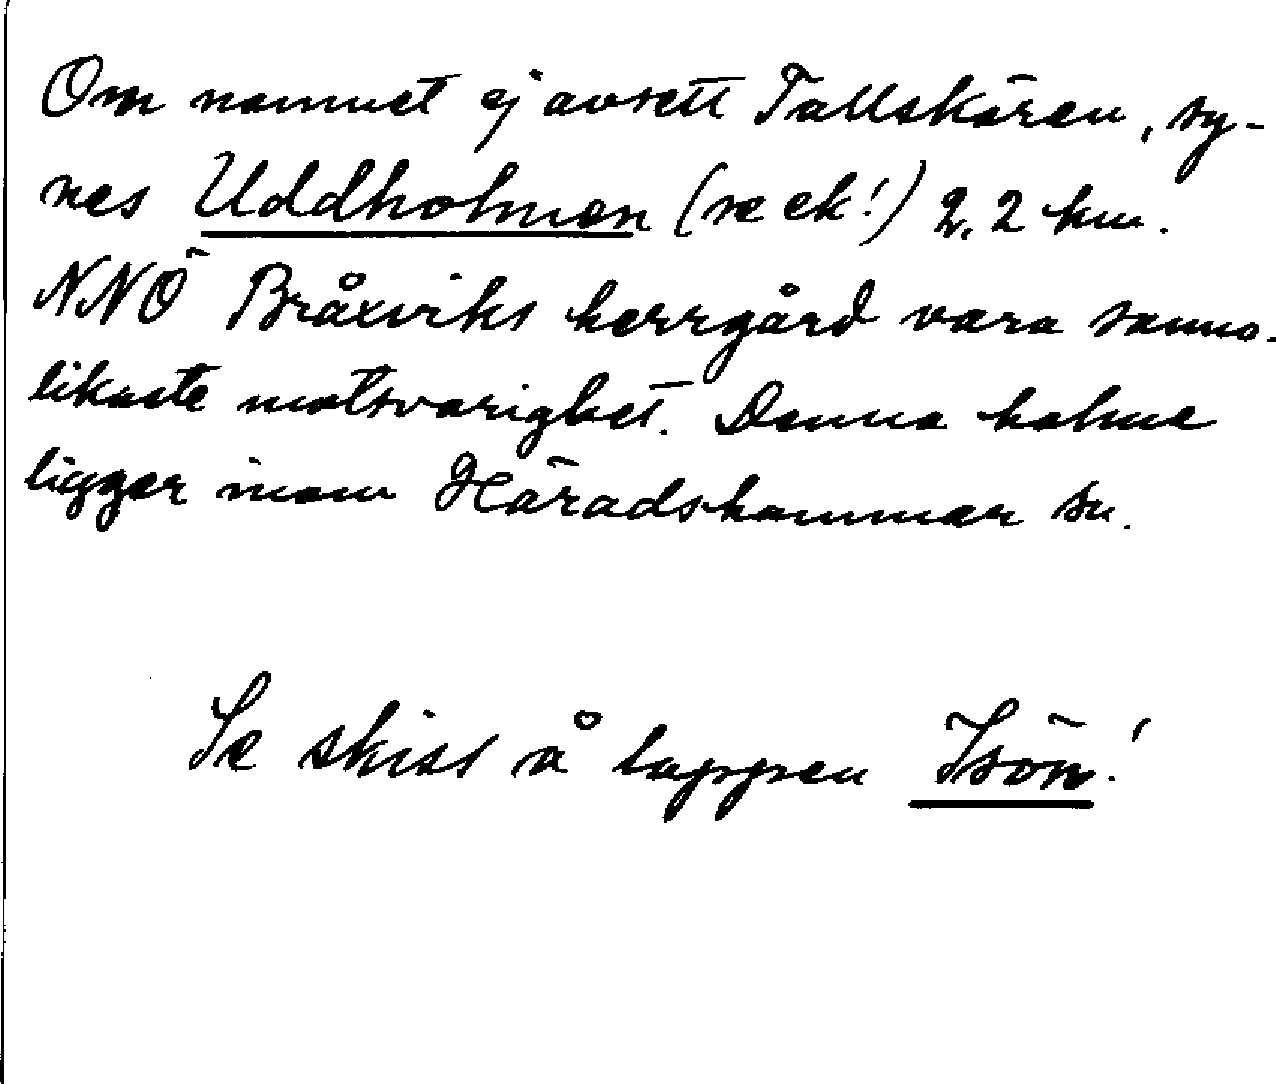 Om namnet ej avsett Tallskären, sy-
nes Uddholmen (se ek!) 2,2 km.
NNÖ Bråxviks herrgård vara sanno-
likaste motsvarighet. Denna holme
ligger inom Häradshammar sn.
Se skiss å lappen Isön!